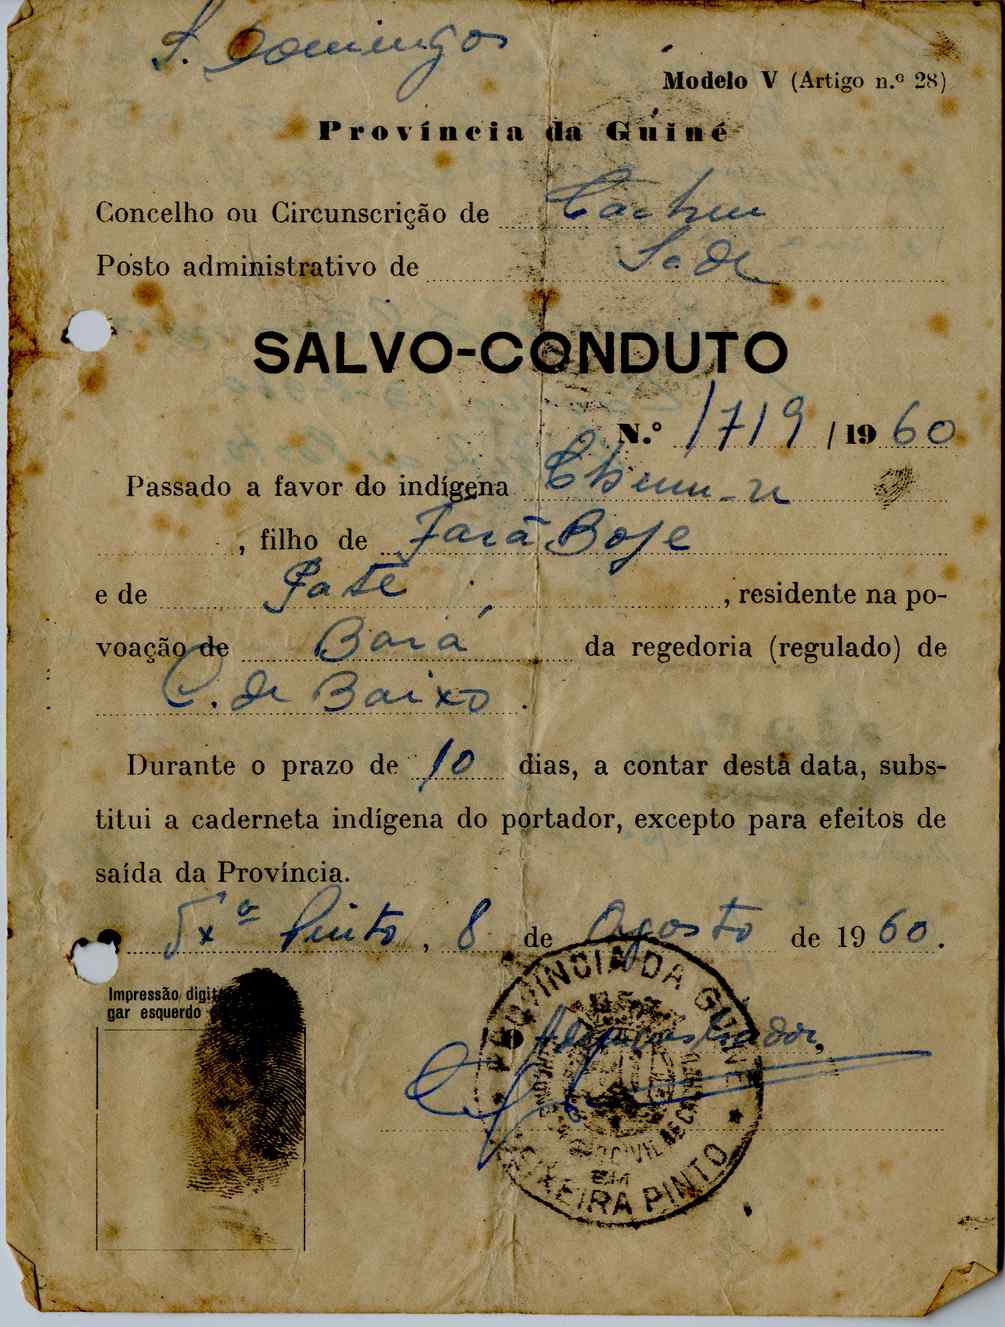 S. Domingos
Modelo V (Artigo n.º 28)
Província da Guiné
Concelho ou Circunscrição de Cacheu
Posto administrativo de Sede
SALVO-CONDUTO
N.º 1719 / 19 60
Passado a favor do indígena
, filho de Jará Boje
e de Paté , residente na po-
voação de Bará da regedoria (regulado) de
C. de Baixo .
Durante o prazo de 10 dias, a contar desta data, subs-
titui a caderneta indígena do portador, excepto para efeitos de
saída da Província.
Txª Pinto , 8 de Agosto de 19 60 .
Impressão digit
gar esquerdo
O Administrador,
PROVÍNCIA DA GUINÉ
EM
TEIXEIRA PINTO